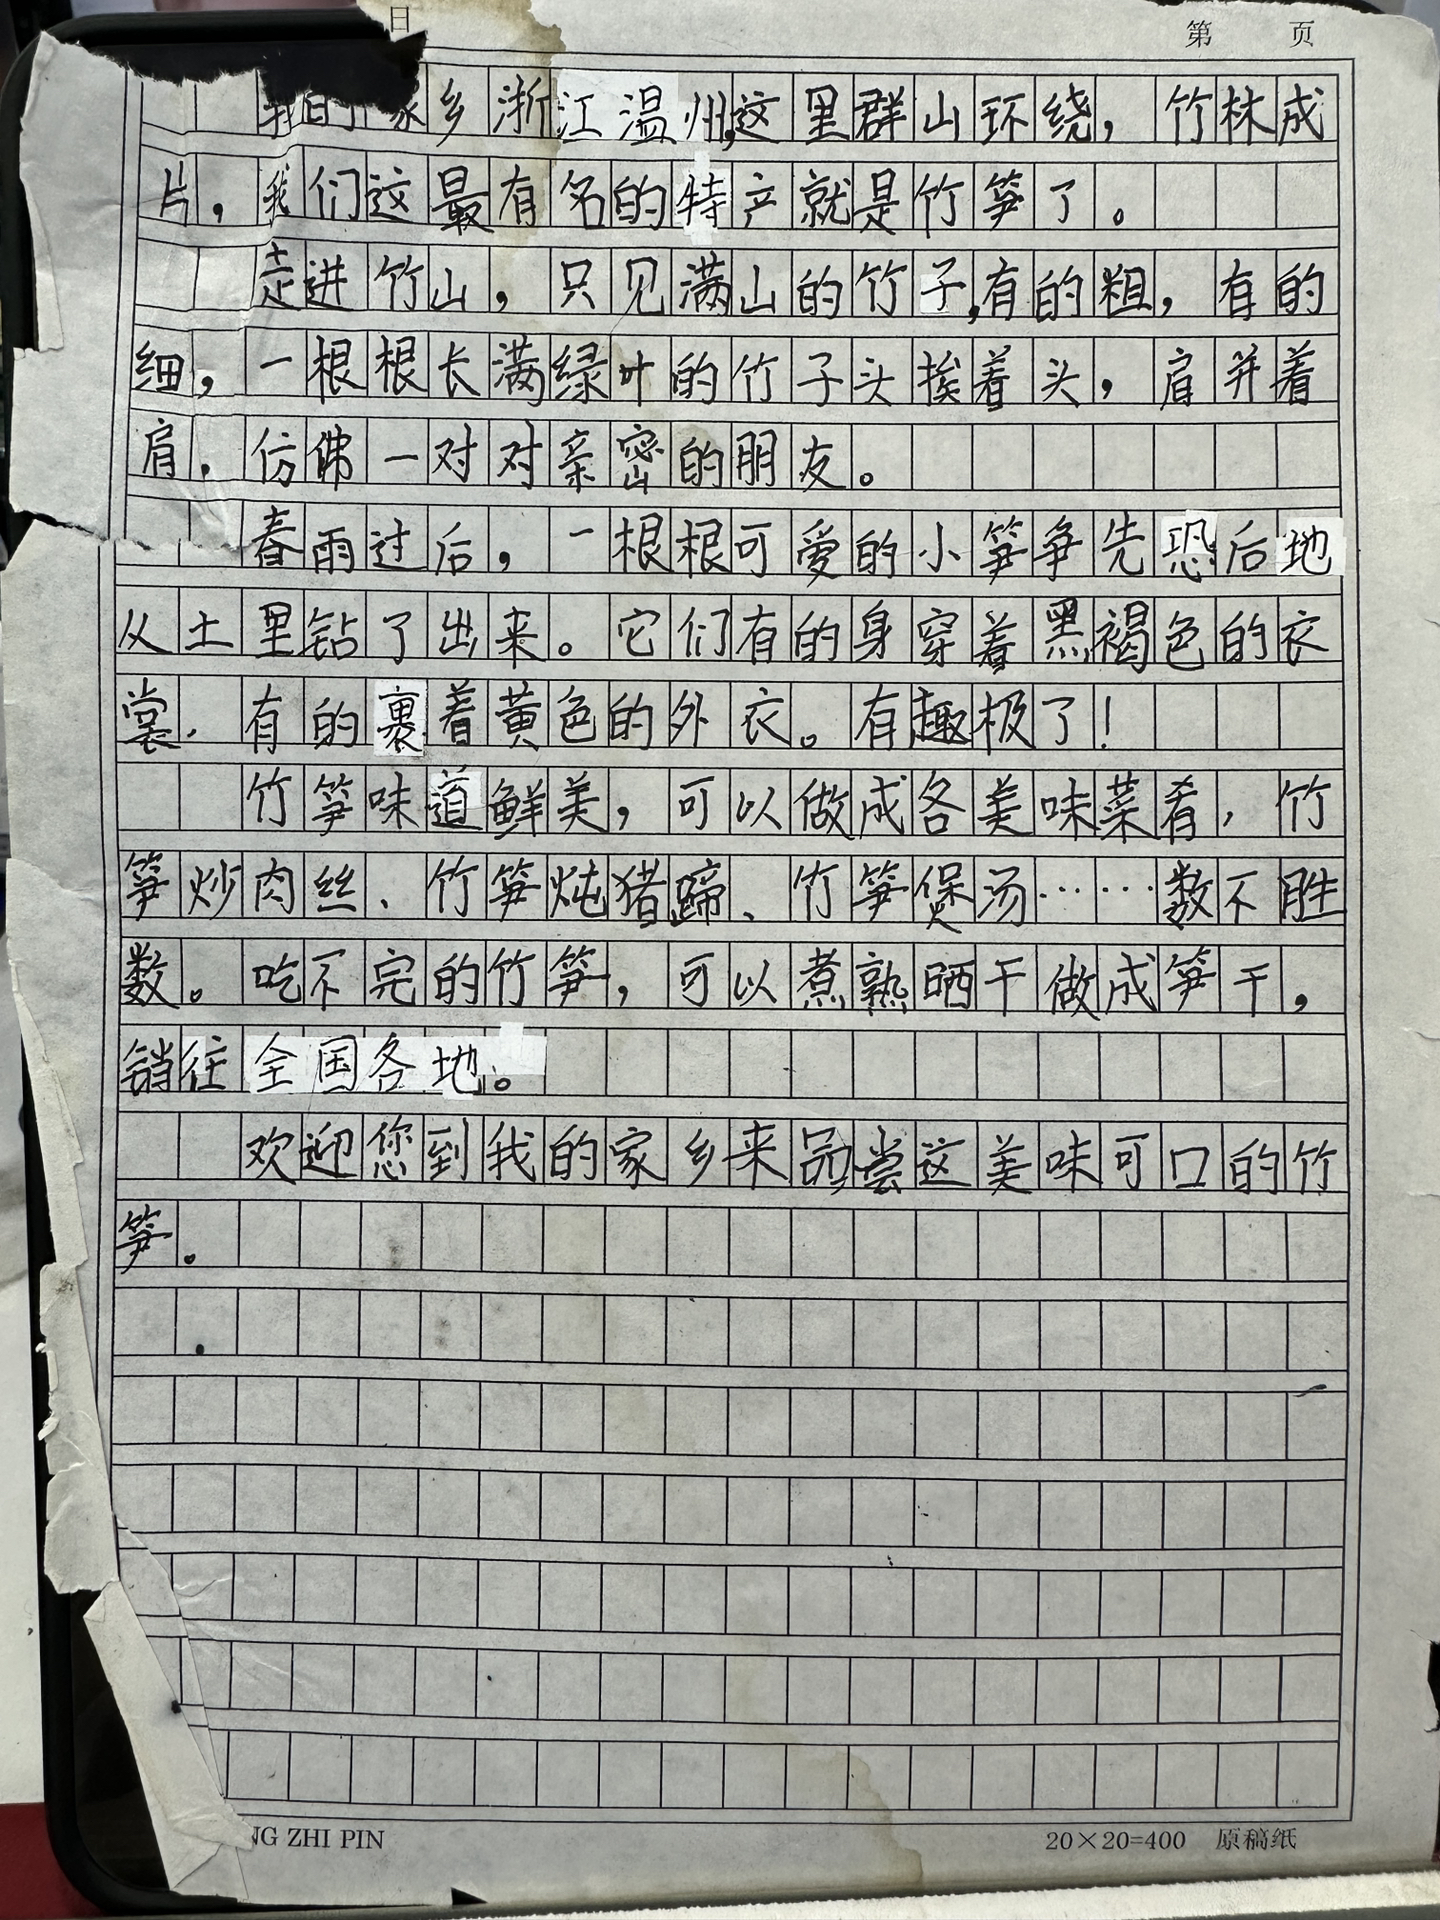 日 第 页
我的家乡浙江温州,这里群山环绕,竹林成
片,我们这最有名的特产就是竹笋了。
走进竹山,只见满山的竹子,有的粗,有的
细,一根根长满绿叶的竹子头挨着头,肩并着
肩,仿佛一对对亲密的朋友。
春雨过后,一根根可爱的小笋争先恐后地
从土里钻了出来。它们有的身穿着黑褐色的衣
裳.有的裹着黄色的外衣。有趣极了!
竹笋味道鲜美,可以做成各美味菜肴,竹
笋炒肉丝、竹笋炖猪蹄、竹笋煲汤……数不胜
数。吃不完的竹笋,可以煮熟晒干做成笋干,
销往全国各地。
欢迎您到我的家乡来品尝这美味可口的竹
笋。
NG ZHI PIN 20×20=400 原稿纸